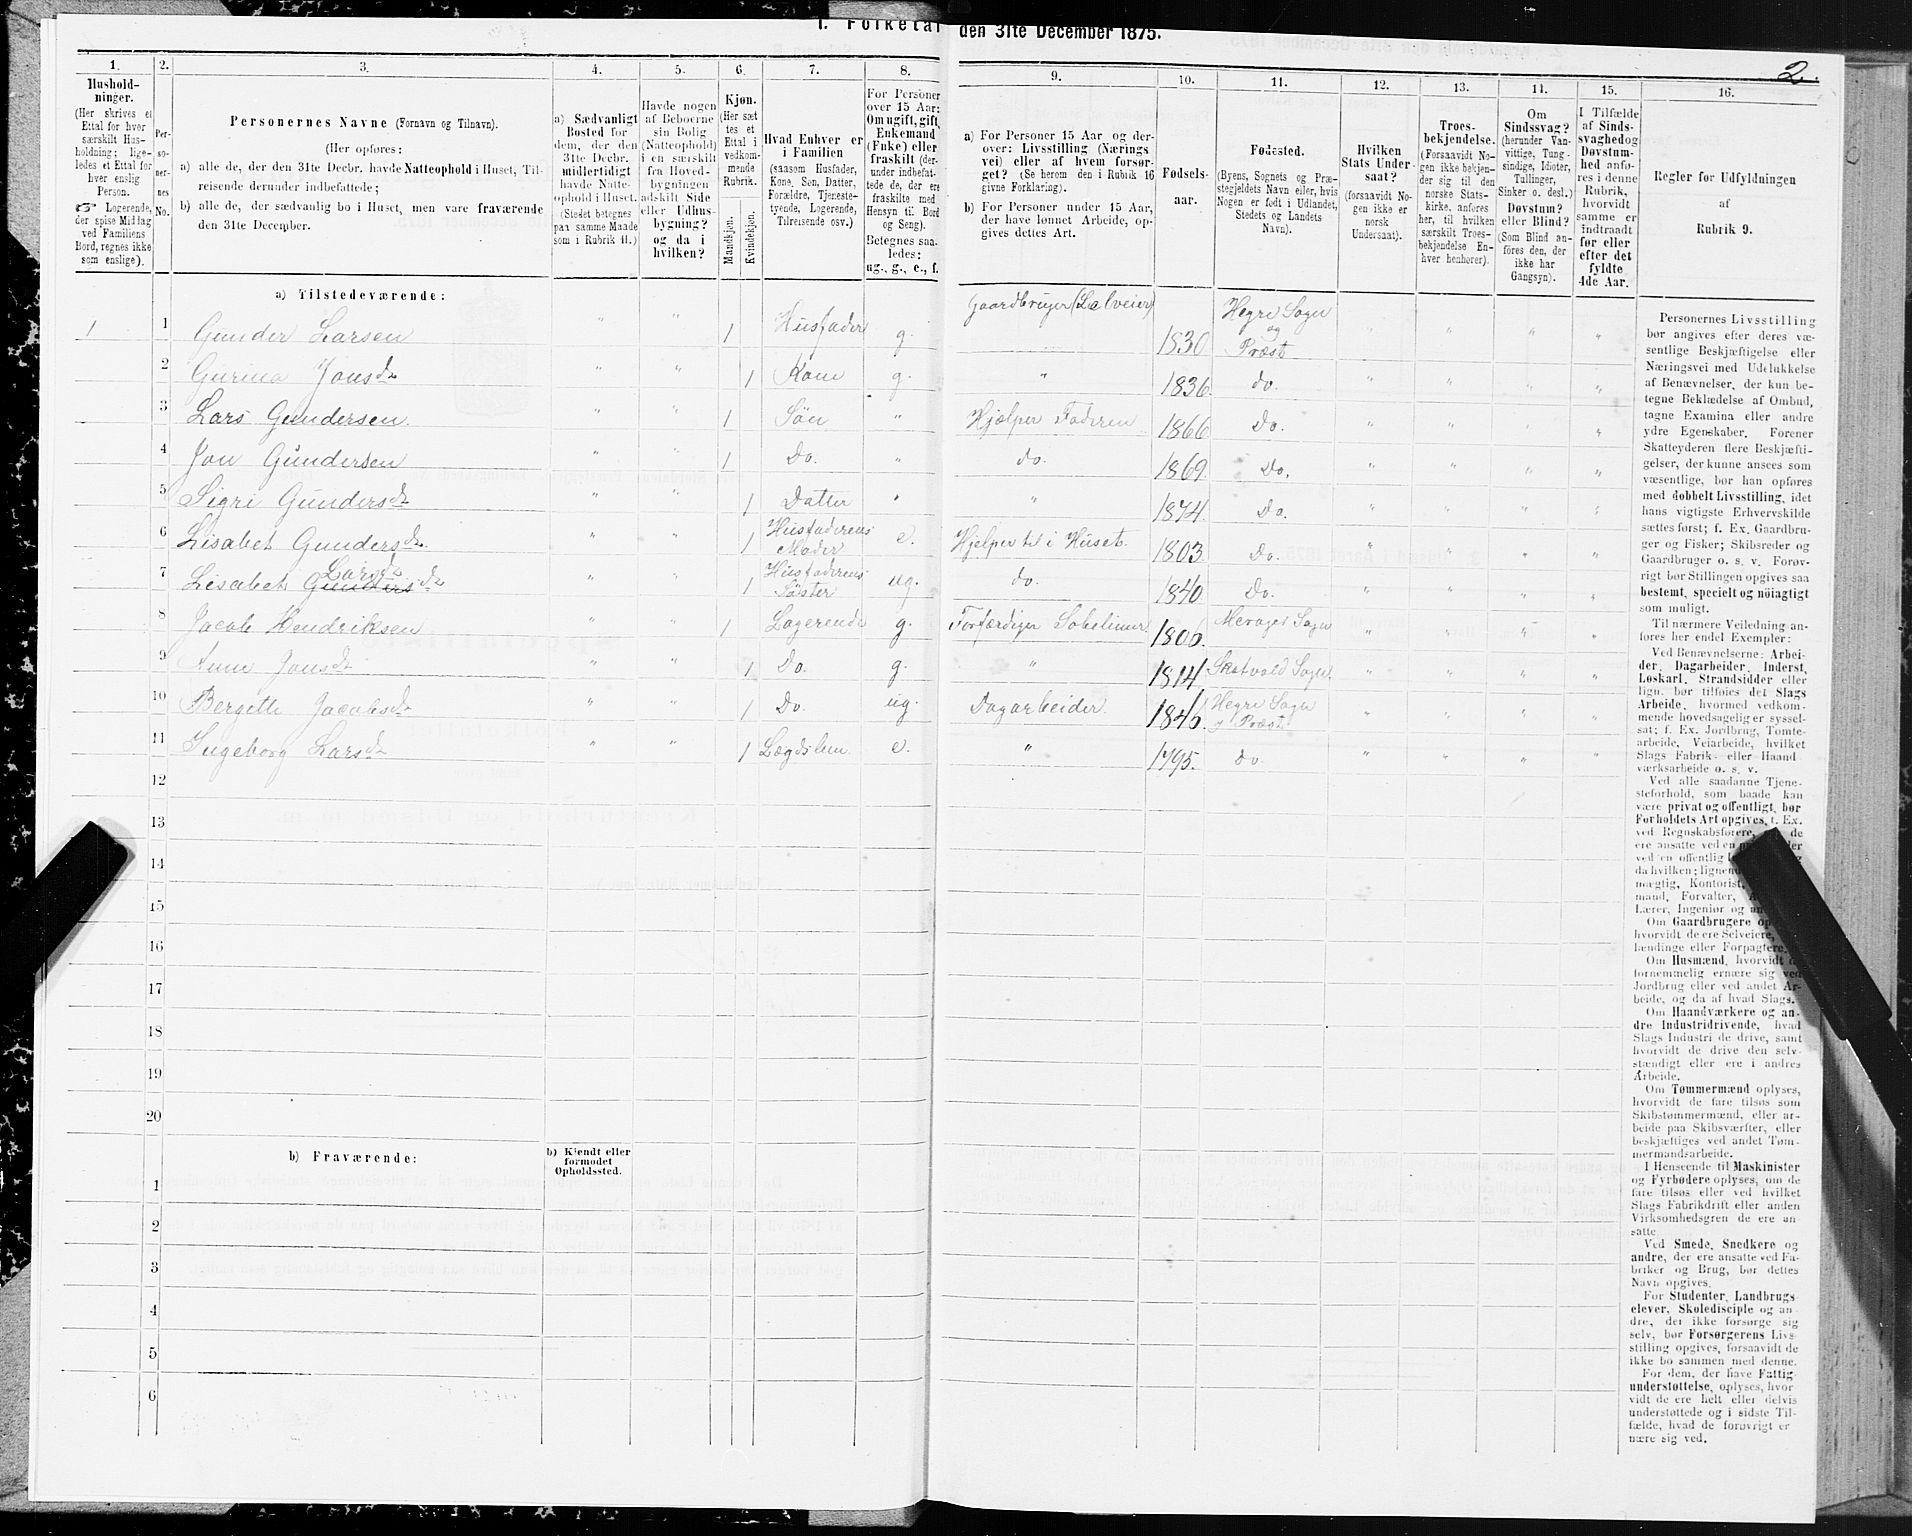 1. Folketal den 31te December 1875.
2.
1.
Hushold-
ninger.
(Her skrives et
Ettal for hver
særskilt Hus-
holdning; lige-
ledes et Ettal for
hver enslig
Person.
Logerende,
der spise Middag
ved Familiens
Bord, regnes ikke
som enslige).
2.
Per-
so-
ner-
nes
No.
3.
Personernes Navne (Fornavn og Tilnavn).
(Her opføres:
a) alle de, der den 31te Decbr. havde Natteophold i Huset, Til-
reisende derunder indbefattede;
b) alle de, der sædvanlig bo i Huset, men vare fraværende
den 31te December.
4.
a) Sædvanligt
Bosted for
dem, der den
31te Decbr.
midlertidigt
havde Natte-
ophold i Huset.
(Stedet betegnes
paa samme Maade
som i Rubrik 11.)
5.
Havde nogen
af Beboerne
sin Bolig
(Natteophold)
i en særskilt
fra Hoved-
bygningen
adskilt Side
eller Udhus-
bygning?
og da i
hvilken?
6.
Kjøn.
(Her sæt
tes et
Ettal i
vedkom-
mende
Rubrik.
Mandkjøn.
Kvindekjøn.
7.
Hvad Enhver er
i Familien
(saasom Husfader,
Kone, Søn, Datter,
Forældre, Tjeneste-
tyende, Logerende,
Tilreisende osv.)
8.
For Personer
over 15 Aar:
Om ugift, gift,
Enkemand
(Enke) eller
fraskilt (der-
under indbefat-
tede de, der ere
fraskilte med
Hensyn til Bord
og Seng).
Betegnes saa-
ledes:
ug., g., e., f.
9.
a) For Personer 15 Aar og der-
over: Livsstilling (Nærings
vei) eller af hvem forsør-
get? (Se herom den i Rubrik 16
givne Forklaring).
b) For Personer under 15 Aar,
der have lønnet Arbeide, op-
gives dettes Art.
10.
Fødsels-
aar.
11.
Fødested.
(Byens, Sognets og Præ-
stegjeldets Navn eller, hvis
Nogen er født i Udlandet,
Stedets og Landets
Navn).
12.
Hvilken
Stats Under-
saat?
(forsaavidt No-
gen ikke er
norsk
Undersaat).
13.
Troes-
bekjendelse.
(Forsaavidt No-
gen ikke bekjen-
der sig til den
norske Stats-
kirke, anføres
her, til hvilken
særskilt Troes-
bekjendelse En-
hver henhører).
14.
Om
Sindssvag?
(herunder Van-
vittige, Tung-
sindige, Idioter,
Tullinger,
Sinker o. desl.)
Døvstum?
eller Blind?
(Som Blind an-
føres den, der
ikke har
Gangsyn).
15.
I Tilfælde
af Sinds-
svaghed og
Døvstum-
hed anfø-
res i denne
Rubrik,
hvorvidt
samme er
indtraadt
før eller
efter det
fyldte
4de Aar.
16.
Regler for Udfyldningen
af
Rubrik 9.
a) Tilstedeværende:
1 1 Gunder Larsen " " 1 Husfader g. Gaardbruger (Selveier) 1830 Hegre Sogn og Præst " " " "
2 Gurina Jonsdr " " 1 Kone g. " 1836. do. " " " "
3 Lars Gundersen. " " 1 Søn " Hjælper Faderen 1866 Do. " " " "
4 Jon Gundersen " " 1 Do. " do. 1869. Do. " " " "
5 Sigri Gundersdr " " 1 Datter " " 1874. Do. " " " "
6 Lisabet Gundersdr. " " 1 Husfaderens Moder e. Hjelper til i Huset. 1803 Do. " " " "
7 Lisabet Gundersdr Larsdr " " 1 Husfaderens Søster ug. do. 1840 Do. " " " "
8 Jacob Hendriksen " " 1 Logerende g. Forfærdiger 1806. Merager Sogn " " " "
9 Anne Jonsdr " " 1 Do. g. " 1814 Skatvold Sogn. " " " "
10 Bergitte Jacobsdr " " 1 Do. ug. Dagarbeider. 1846. Hegre Sogn og Præst " " " "
11 Ingeborg Larsdr " " 1 Lægdslem. e. " 1795. do. " " " "
12
13
14
15
16
17
18
19
20
b) Fraværende:
b) Kjendt eller
formodet
Opholdssted.
1
2
3
4
5
6
Personernes Livsstilling
bør angives efter deres væ-
sentlige Beskjæftigelse eller
Næringsvei med Udelukkelse
af Benævnelser, der kun be-
tegne Beklædelse af Ombud,
tagne Examina eller andre
ydre Egenskaber. Forener
Skatteyderen flere Beskjæfti-
gelser, der kunne ansees som
væsentlige, bør han opføres
med dobbelt Livsstilling, idet
hans vigtigste Erhvervskilde
sættes først; f. Ex. Gaardbru-
ger og Fisker; Skibsreder og
Gaardbruger o. s. v. Forøv-
rigt bør Stillingen opgives saa
bestemt, specielt og nöiagtigt
som muligt.
Til nærmere Veiledning an-
føres her endel Exempler:
Ved Benævnelserne: Arbei-
der, Dagarbeider, Inderst,
Løskarl, Strandsidder eller
lign. bør tilføies det Slags
Arbeide, hvormed vedkom-
mende hovedsagelig er syssel-
sat; f. Ex. Jordbrug, Tomte-
arbeide, Veiarbeide, hvilket
Slags Fabrik- eller Haand
værksarbeide o. s. v.
Ved alle saadanne Tjene-
steforhold, som baade kan
være privat og offentligt, bør
Forholdets Art opgives, f. Ex.
ved Regnskabsførere, de
ere ansatte ved en
ved en offentlig
da hvilken;
mægtig, Kontorist,
mand, Forvalter,
Lærer, Ingeniør og
Om Gaardbrugere
hvorvidt de ere Selveiere,
lændinge eller Forpagtere.
Om Husmænd, hvorvidt
fornemmelig ernære sig ved
Jordbrug eller ved andet Ar-
beide, og da af hvad Slags.
Om Haandværkere og an-
dre Industridrivende, hvad
Slags Industri de drive, samt
hvorvidt de drive den selv-
stændigt eller ere i andres
Arbeide.
Om Tømmermænd oplyses,
hvorvidt de fare tilsøs som
Skibstømmermænd, eller ar-
beide paa Skibsværfter, eller
beskjæftiges ved andet Tøm-
mermandsarbeide.
I Henseende til Maskinister
og Fyrbødere oplyses, om de
fare tilsøs eller ved hvilket
Slags Fabrikdrift eller anden
Virksomhedsgren de ere an-
satte.
Ved Smede, Snedkere og
andre, der ere ansatte ved Fa-
briker og Brug, bør dettes
Navn opgives.
For Studenter, Landbrugs-
elever, Skoledisciple og an-
dre, der ikke forsørge sig
selv, bør Forsørgerens Livs-
stilling opgives, forsaavidt de
ikke bo sammen med denne.
For dem, der have Fattig-
understøttelse, oplyses, hvor
vidt de ere helt eller delvis
understøttede og i sidste Til-
fælde, hvad de forøvrigt er
nære sig ved.